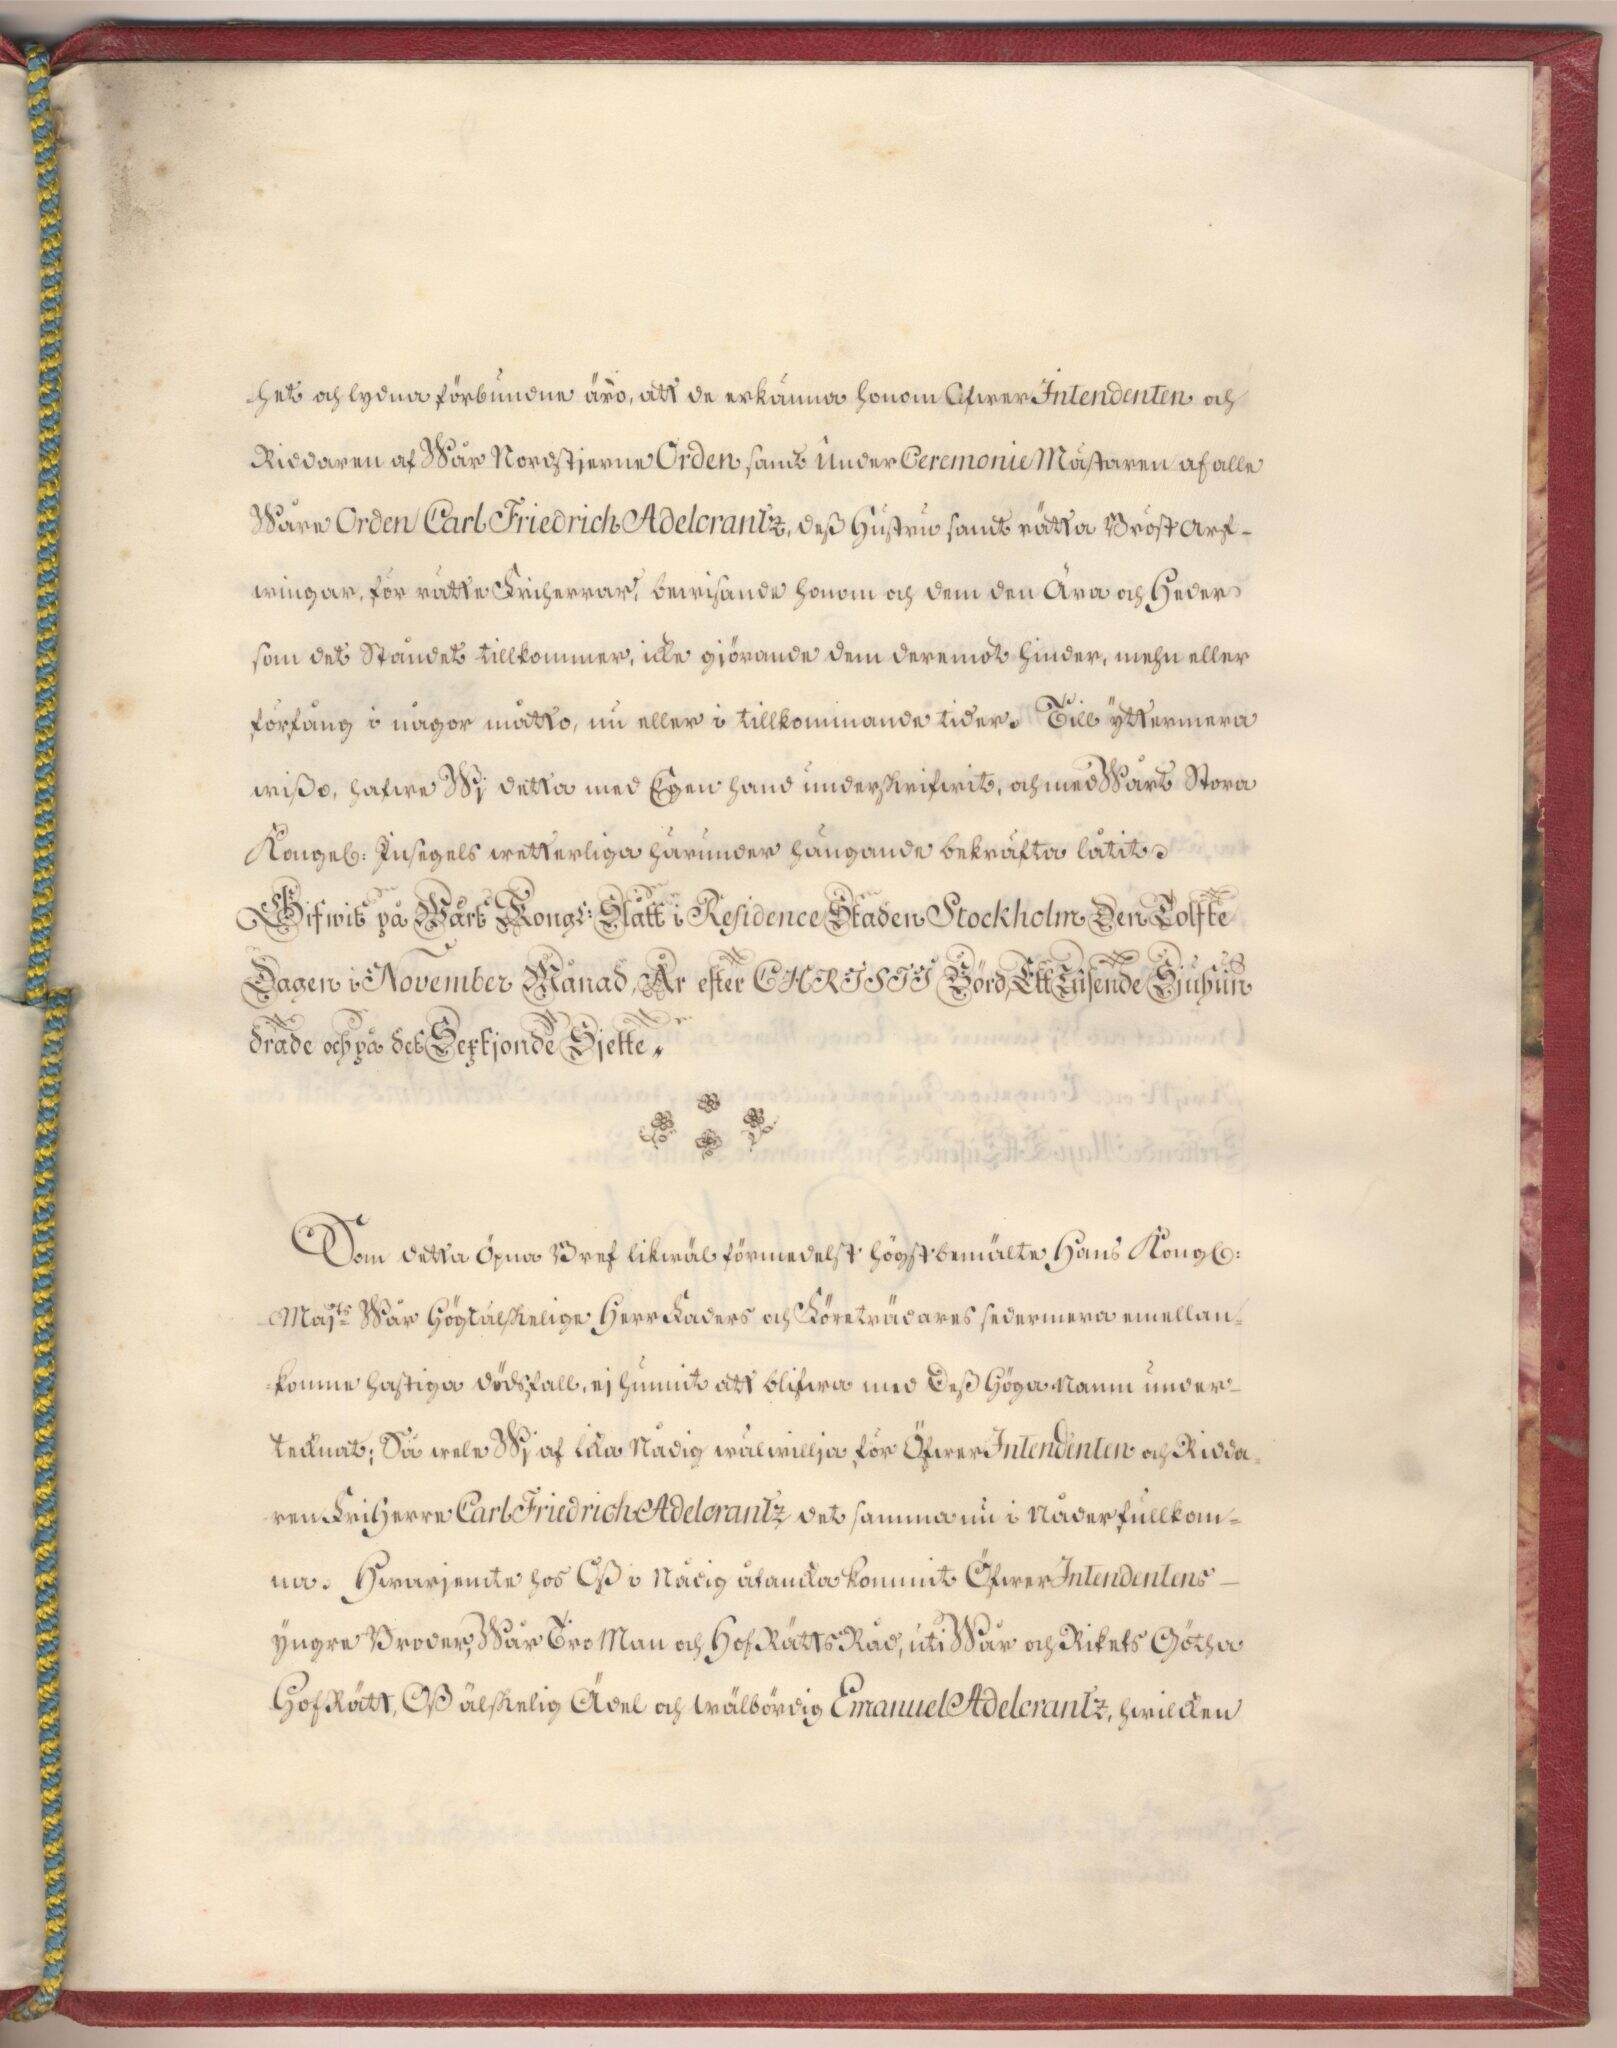 het och lydna förbundne äro, att de erkänna honom Öfwer Intendenten och
Riddaren af Wår Nordstjerne Orden samt Under Ceremonie Mästaren af alle
Wåre Orden Carl Friedrich Adelcrantz, deß Hustru samt rätta Bröst Arf-
wingar, för rätte Friherrar, bewisande honom och dem den Ära och Heder
som det Ståndet tillkommer, icke giörande dem deremot hinder, mehn eller
förfång i någor måtto, nu eller i tillkommande tider. Till ÿttermera
wißo, hafwe Wj detta med Egen hand underskrifwit, och med Wårt Stora
Kongel: Insegels wetterliga härunder hängande bekräfta låtit.
Gifwit på Wårt Kongl: Slått i Residence Staden Stockholm Den Tolfte
Dagen i November Månad, År efter CHRISTI Börd, Ett Tusende Sjuhun
drade och på det Sextjonde Sjette.
Som detta Öpna Bref likwäl förmedelst högstbemälte Hans Kongl:
Majts Wår Högtälskelige Herr Faders och Företrädares sedermera emellan-
komne hastiga dödsfall, ej hunnit att blifwa med Deß Höga Namn under-
tecknat; Så wele Wj af lika Nådig wälwillja för Öfwer Intendenten och Ridda-
ren Fri Herre Carl Friedrich Adelcrantz det samma nu i Nåder fullkom-
na. Hwarjemte hos Oß i Nådig åtanka kommit Öfwer Intendentens
ÿngre Broder, Wår Tro Man och Hof Rätts Råd, uti Wår och Rikets Götha
Hof Rätt, Oß älskelig Ädel och Wälbördig Emanuel Adelcrantz, hwilcken